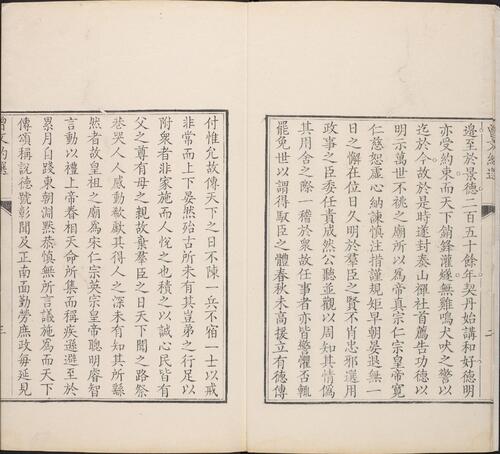 邊至於景德二百五十餘年契丹始講和好德明
亦受約束而天下銷鋒灌燧無雞鳴犬吠之警以
迄於今故於是時遂封泰山禪社首薦告功德以
明示萬世不祧之廟所以為帝真宗仁宗皇帝寬
仁慈恕虛心納諫慎注措謹規矩早朝晏退無一
日之懈在位日久明於羣臣之賢不肖忠邪選用
政事之臣委任責成然公聽並觀以周知其情偽
其用舍之際一稽於衆故任事者亦皆警懼否輒
罷免世以謂得馭臣之體春秋未高援立有德傳
付惟允故傳天下之日不陳一兵不宿一士以戒
非常而上下晏然殆古所未有其豈弟之行足以
附衆者非家施而人悅之也積之以誠心民皆有
父之尊有母之親故棄羣臣之日天下聞之路祭
巷哭人人感動歔欷其得人之深未有知其所繇
然者故皇祖之廟為宋仁宗英宗皇帝聰明睿智
言動以禮上帝眷相天命所集而稱疾遜避至於
累月自踐東朝淵黙恭慎無所言議施為而天下
傳頌稱說德號彰聞及正南面勤勞庶政每延見
曾文約選
三